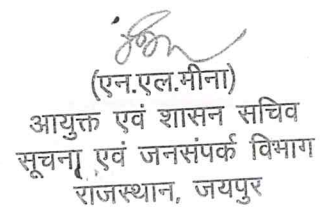 (एन.एल.मीना)
आयुक्त एवं शासन सचिव
सूचना एवं जनसंपर्क विभाग
राजस्थान, जयपुर